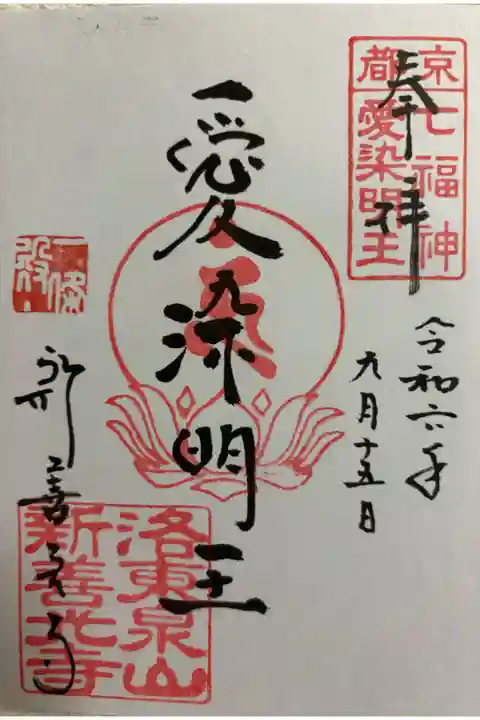 京都
七福神
愛染明王
奉拝
令和六年
九月十五日
愛染明王
一條
殿
新善光寺
洛東泉山
新善光寺